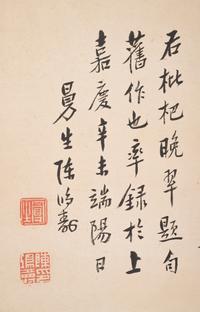 右枇杷晚翠題句
舊作也率錄於上
嘉慶辛未端陽日
曼生陳鴻壽